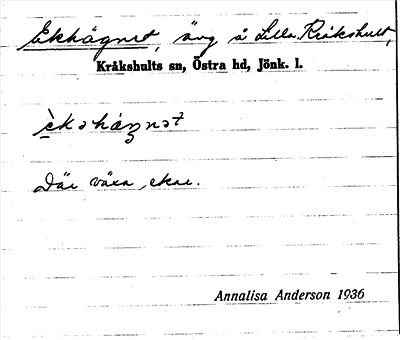 Ekhägnet, äng å Lilla Kråkshult,
Kråkshults sn, Östra hd, Jönk. l.
èkəhágnət
Där växa ekar.
Annalisa Anderson 1936